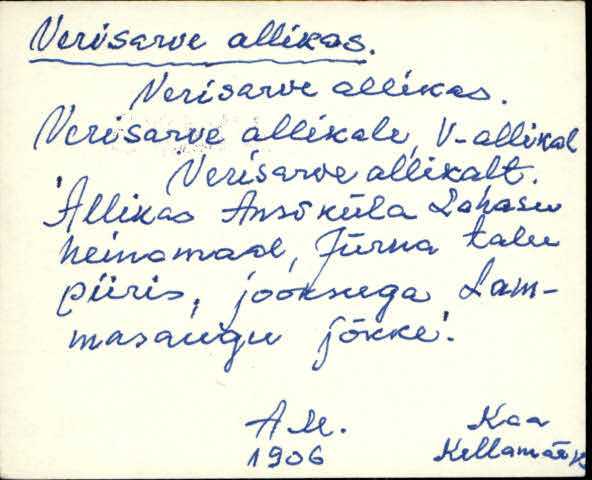 Verisarve allikas.
Verisarve allikas.
Verisarve allikale, V-allikal
Verisarve allikalt.
'Allikas Ansõküla Lahasu
heinamaal, Jürna talu
piiris, jooksuga Lam-
masaugu jõkke'.
A.M. Kaa
1906 Kellamäe k